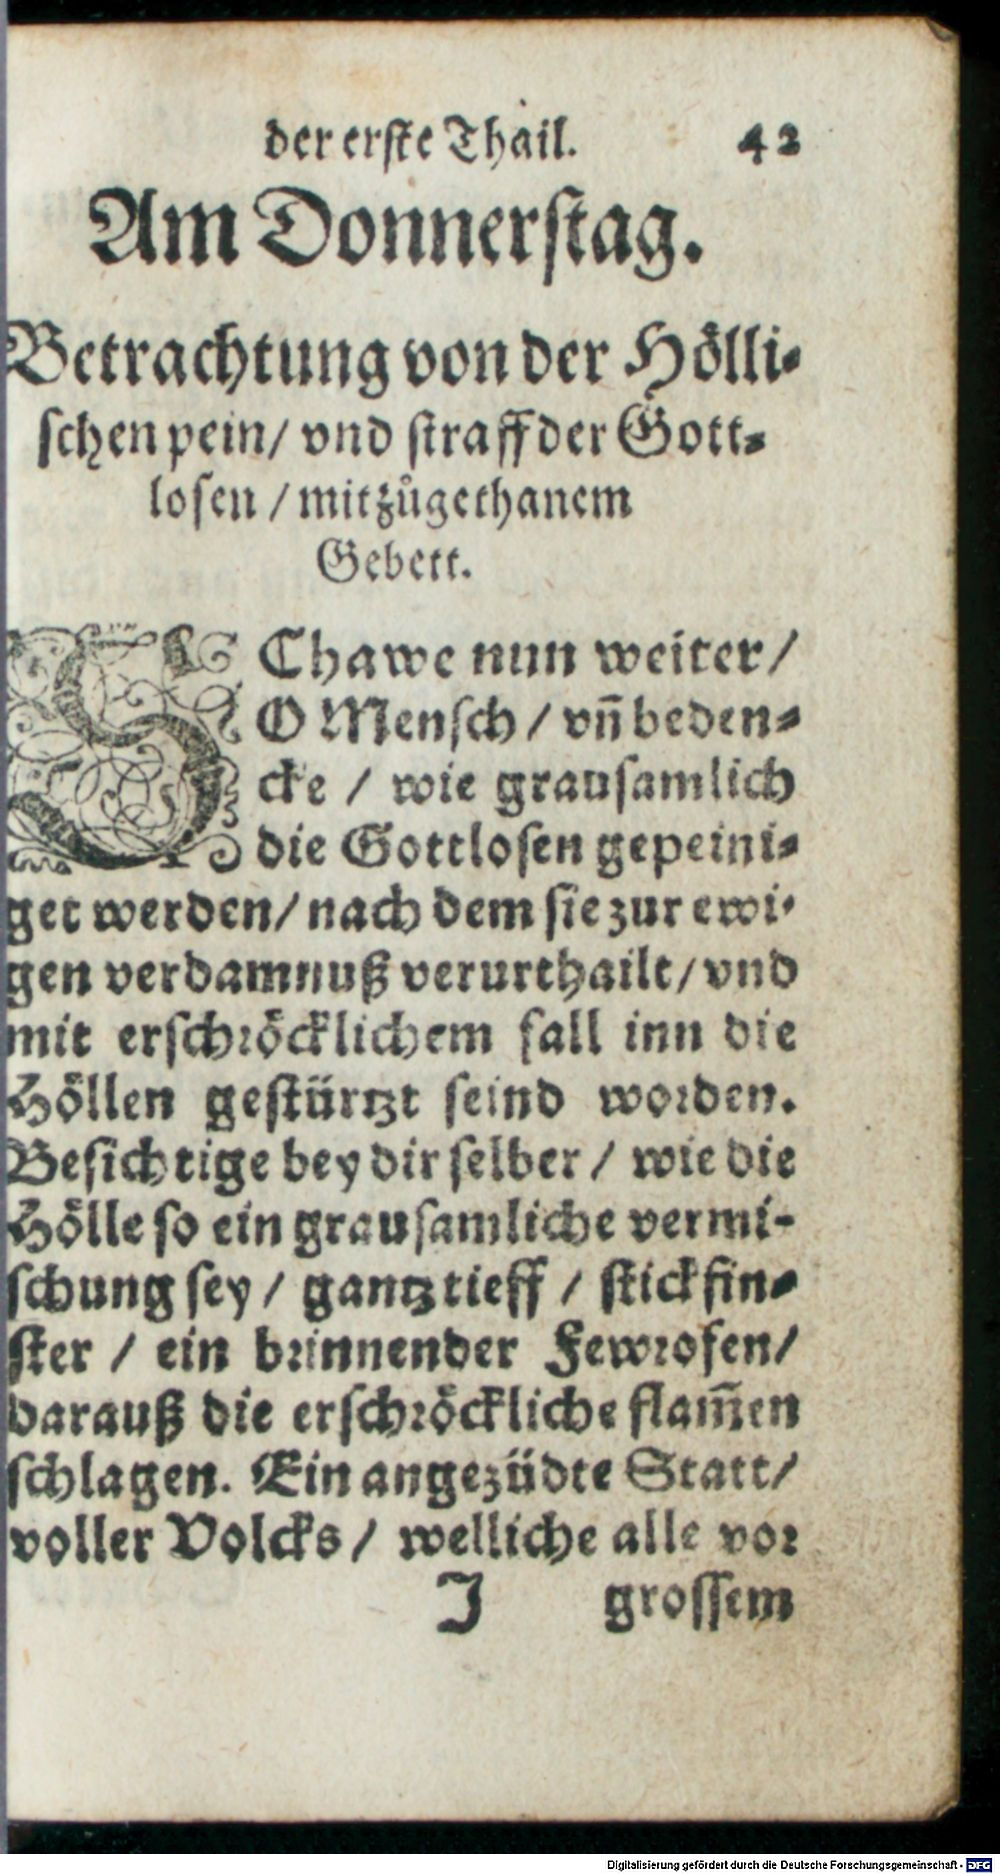 der erste Thail. 42
Am Donnerstag.
Betrachtung von der Hölli-
schen pein/ vnd straff der Gott-
losen / mit zůgethanem
Gebett.
SChawe nun weiter/
O Mensch / vn̄ beden-
cke / wie grausamlich
die Gottlosen gepeini-
get werden/ nach dem sie zur ewi-
gen verdamnuß verurthailt/ vnd
mit erschröcklichem fall inn die
Höllen gestürtzt seind worden.
Besichtige bey dir selber / wie die
Hölle so ein grausamliche vermi-
schung sey / gantz tieff / stickfin-
ster / ein brinnender Fewrofen/
darauß die erschröckliche flam̄en
schlagen. Ein angezüdte Statt/
voller Volcks / welliche alle vor
J grossem
Digitalisierung gefördert durch die Deutsche Forschungsgemeinschaft - DFG